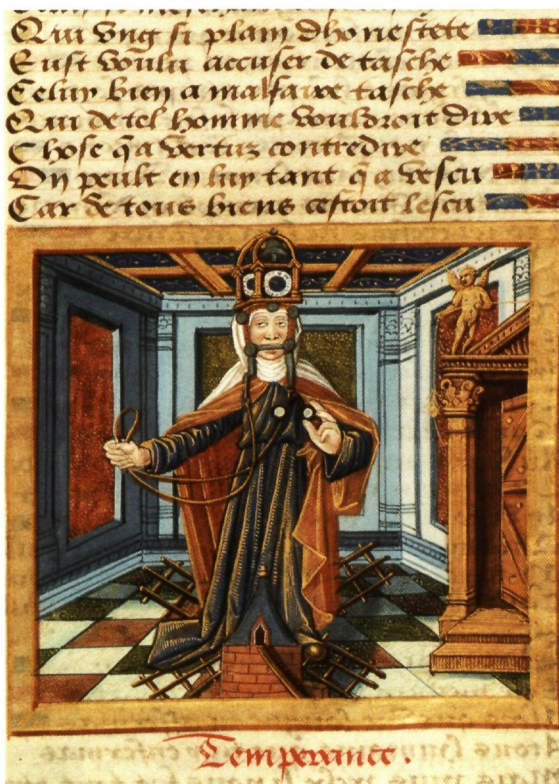 Qui vng si plain dhonestete
Eust voulu accuser de tasche
Celuy bien a malfaire tasche
Qui de tel homme vouldroit dire
Chose q̃ a vertuz contredire
On peult en luy tant q̃ a vescu
Car de tous biens cestoit lescu
Temperance.